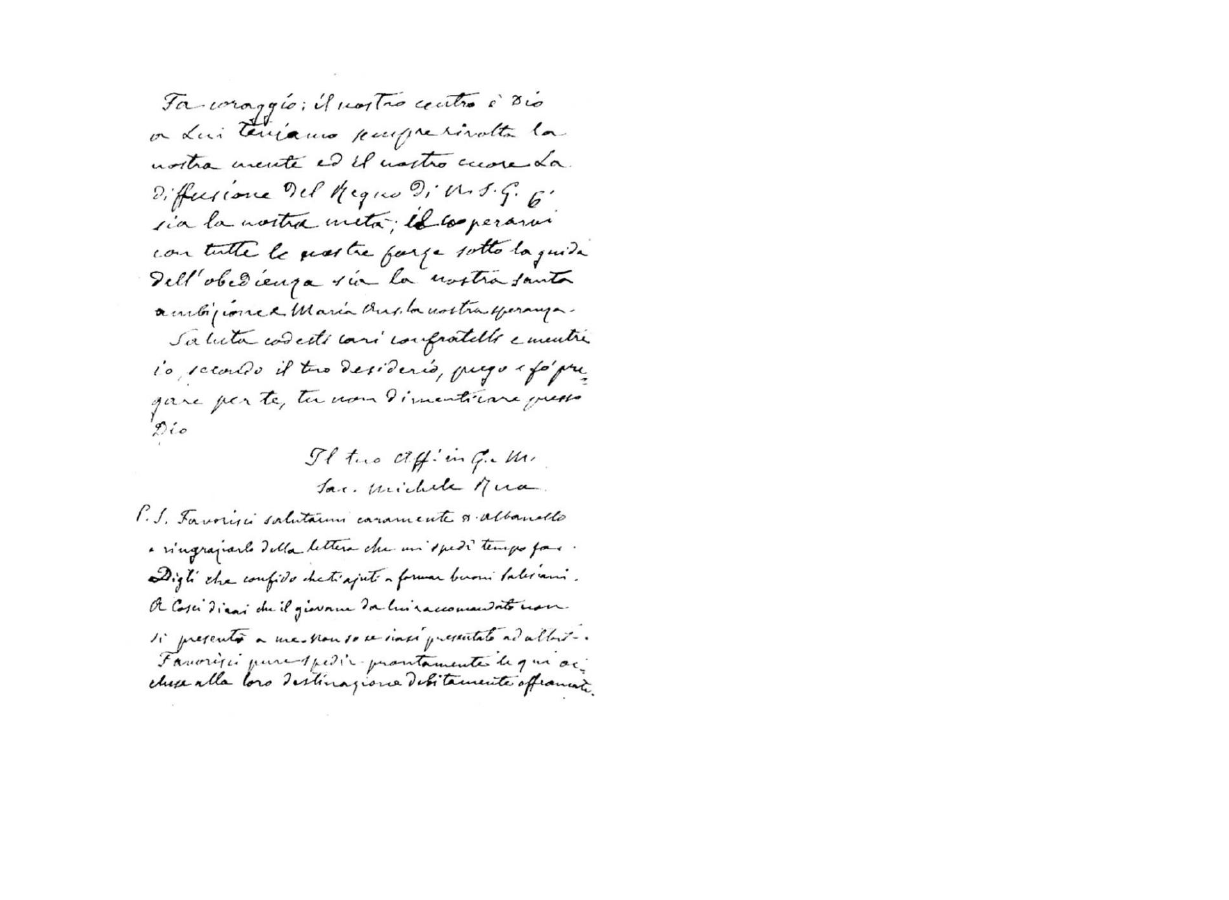 Fa coraggio; il nostro centro è Dio
a Lui teniamo sempre rivolta la
nostra mente ed il nostro cuore La
diffusione del Regno di N. S. G. C.
sia la nostra meta; il cooperarvi
con tutte le nostre forze sotto la guida
dell'obedienza sia la nostra santa
ambizione e Maria Aus. la nostra speranza.
Saluta codesti cari confratelli e mentre
io, secondo il tuo desiderio, prego e fo' pre=
gare per te, tu non dimenticare presso
Dio
Il tuo Aff. in G. e M.
Sac. Michele Rua
P. S. Favorisci salutarmi caramente Albanello
e ringraziarlo della lettera che mi spedì tempo fa.
Digli che confido che ti ajuti a formar buoni Salesiani.
A Cosci dirai che il giovane da lui raccomandato non
si presentò a me. Non so se siasi presentato ad
Favorisci pure spedir prontamente le qui ac=
cluse alla loro destinazione debitamente affrancate.